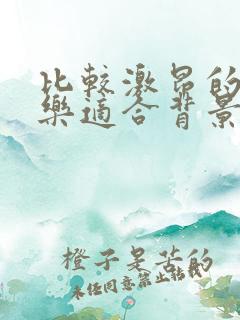 比較激昂的
樂適合背景
橙子是苦的
未经同意禁止转载